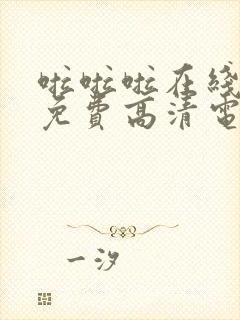 啦啦啦在线
免費高清電
一汐